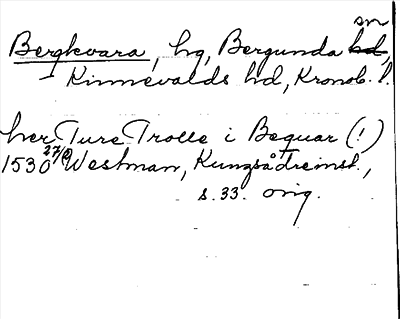 Bergkvara, hg, Bergunda sn
Kinnevalds hd, Kronob. l.
her Ture Trolle i Bequar (!)
1530 27/8 Westman, Kungsådreinst.,
s. 33. orig.